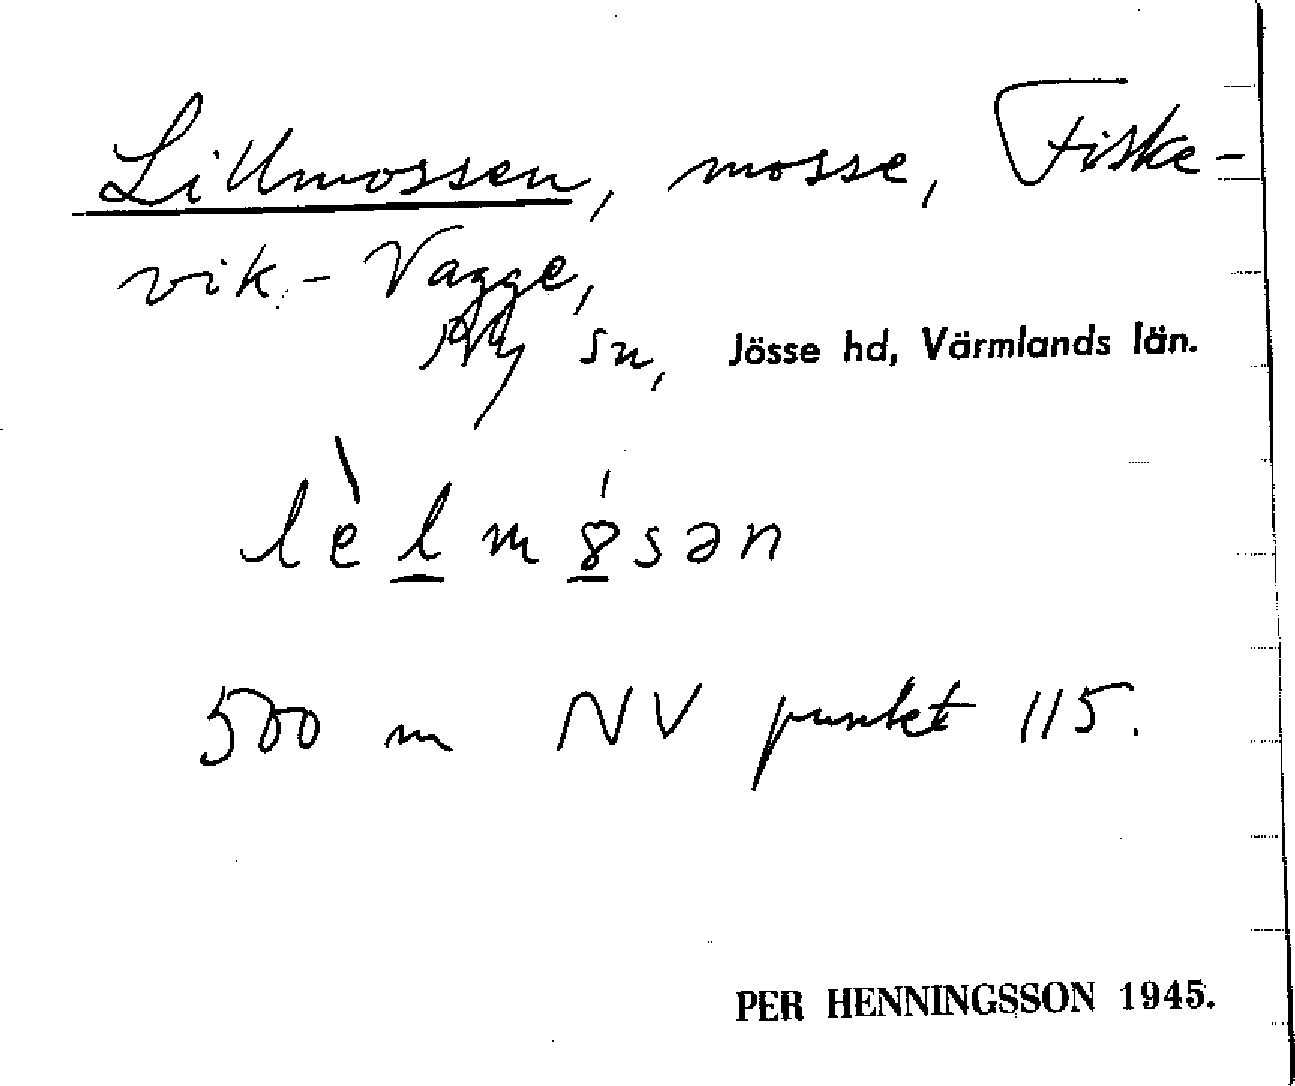 Lillmossen, mosse, Fiske-
vik - Vagge,
Ny sn, Jösse hd, Värmlands län.
lèlmó̱sən
500 m NV punkt 115.
PER HENNINGSSON 1945.